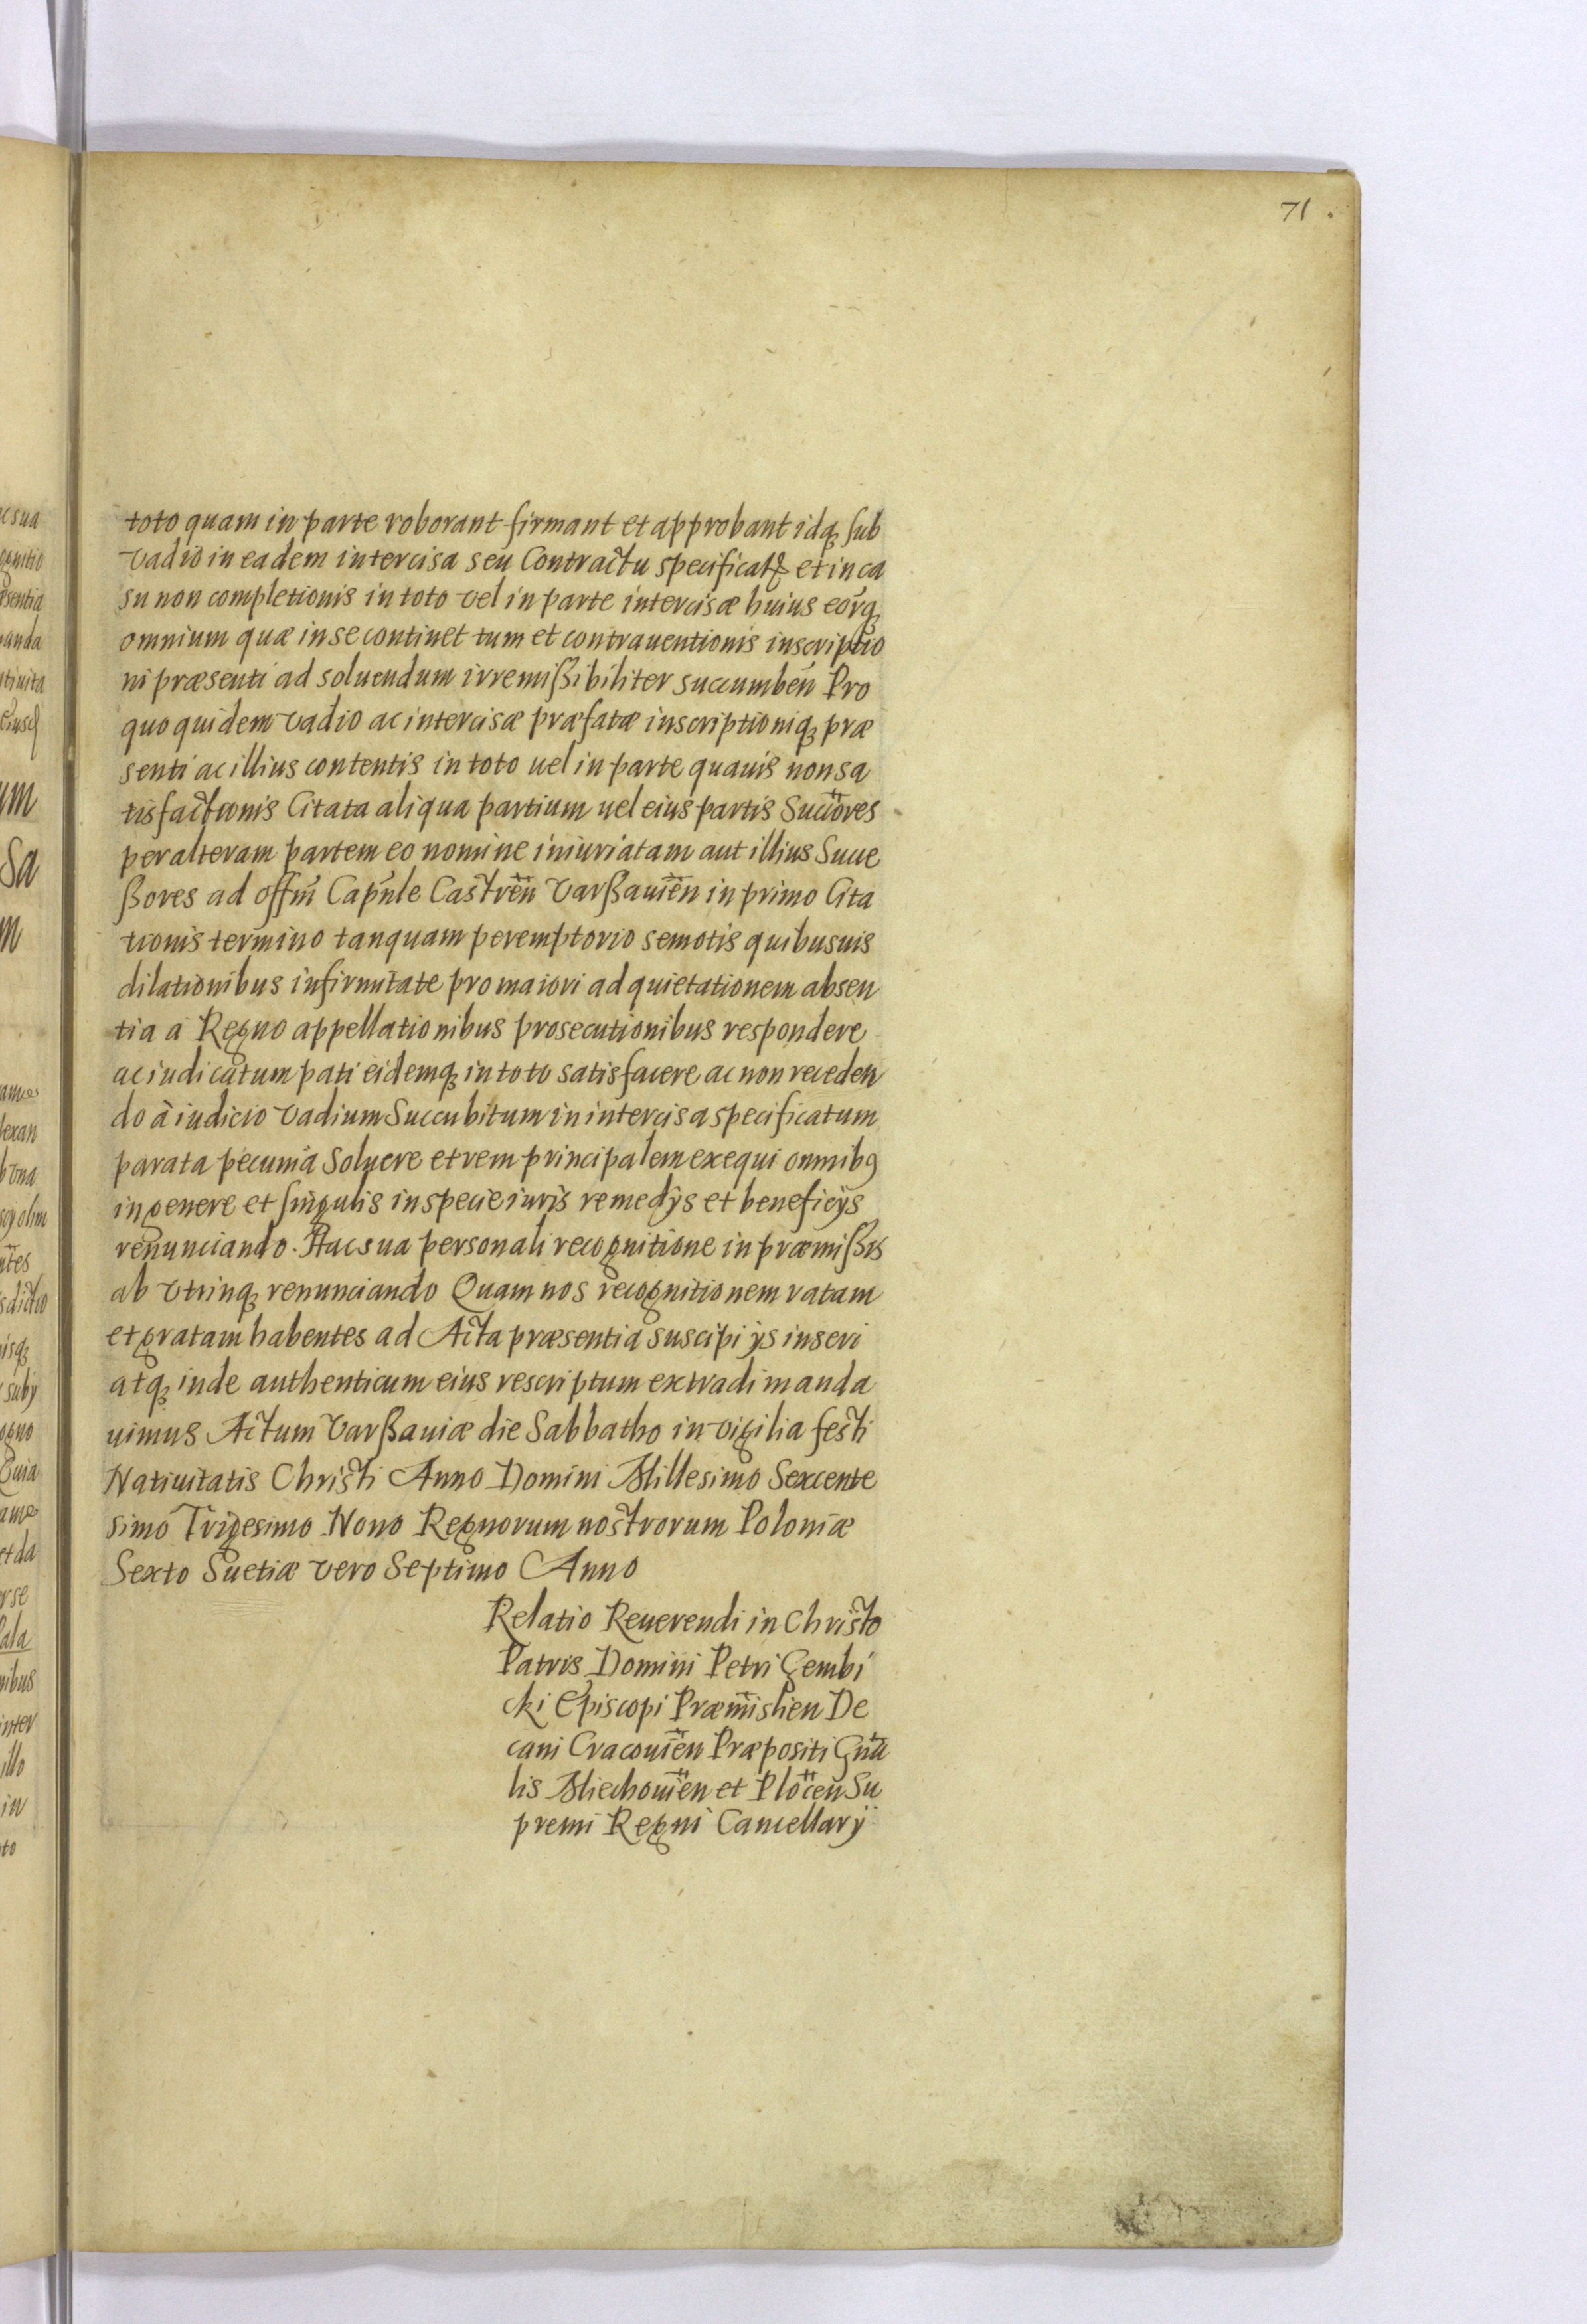 71.
toto quam in parte roborant firmant et approbant idq́ sub
vadio in eadem intercisa seu Contractu specificat et in ca
su non completionis in toto vel in parte intercisæ huius eorq́
omnium quæ in se continet tum et contrauentionis inscriptio
ni præsenti ad soluendum irremißibiliter succumben̄ Pro
quo quidem vadio ac intercisæ præfatæ inscriptioniq́ præ
senti ac illius contentis in toto uel in parte quauis non sa
tisfactionis Citata aliqua partium uel eius partis Succores
per alteram partem eo nomine iniuriatam aut illius Succe
ßores ad offm̄ Capn̄le Castren̄ Varßauien̄ in primo Cita
tionis termino tanquam peremptorio semotis quibusuis
dilationibus infirmitate pro maiori ad quietationem absen
tia a Regno appellationibus prosecutionibus respondere
ac iudicatum pati eidemq́ in toto satisfacere ac non receden
do à iudicio vadium Succubitum in intercisa specificatum
parata pecunia Soluere et rem principalem exequi omnibꝰ
in genere et singulis in specie iuris remedÿs et beneficÿs
renunciando. Hac sua personali recognitione in præmißis
ab vtrinq́ renunciando Quam nos recognitionem ratam
et gratam habentes ad Acta præsentia suscipi ÿs inseri
atq́ inde authenticum eius rescriptum extradi manda
uimus Actum Varßauiæ die Sabbatho in vigilia festi
Natiuitatis Christi Anno Domini Millesimo Sexcente
simo Trigesimo Nono Regnorum nostrorum Poloniæ
Sexto Suetiæ vero Septimo Anno
Relatio Reuerendi in Christo
Patris Domini Petri Gembi
cki Episcopi Præmislien De
cani Cracouien̄ Præpositi Gn̄a
lis Miechouien̄ et Plocen̄ Su
premi Regni Cancellarÿ